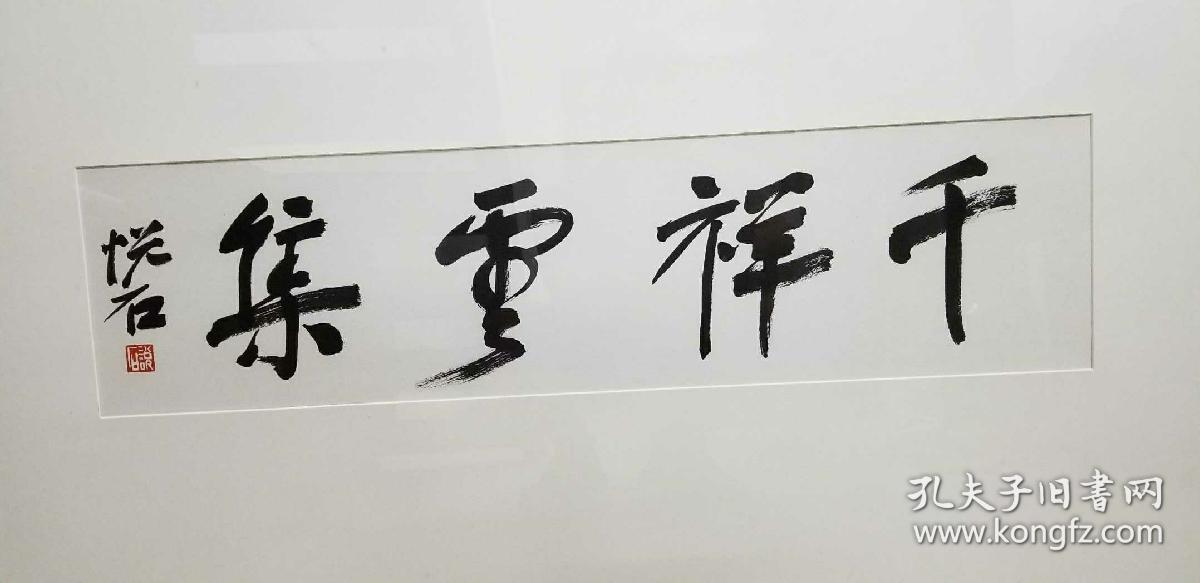 千祥雲集
悦石
孔夫子旧書网
www.kongfz.com